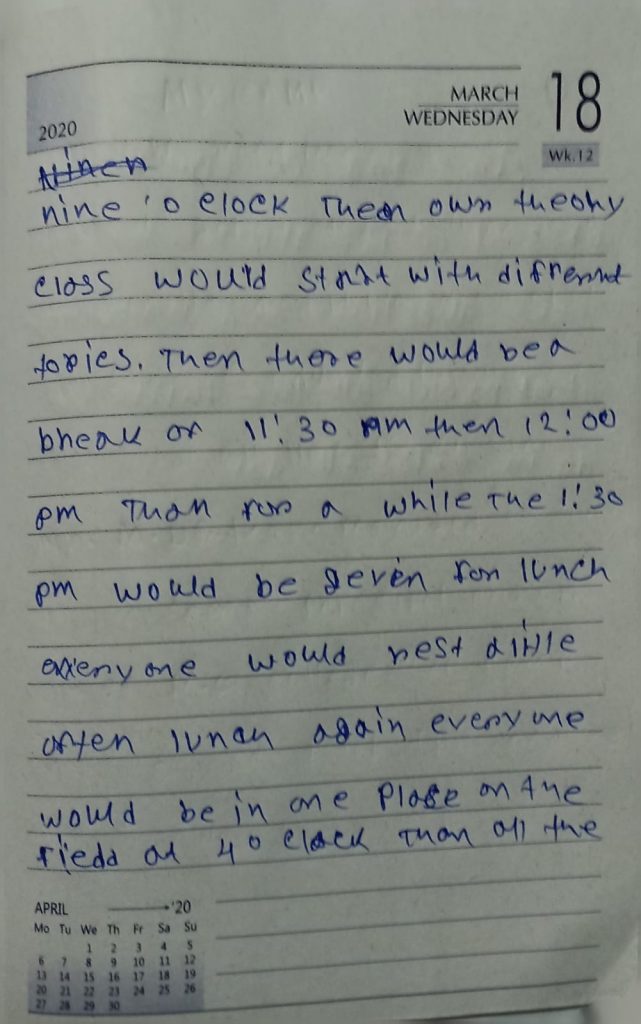 MARCH
WEDNESDAY
18
2020
Wk.12
nine 'o clock Then own theory
class would start with difrennt
topies. Then there would be a
break or 11:30 AM then 12:00
pm Than ror a while The 1:30
pm would be geven for lunch
everyone would rest alittle
often lunch again everyone
would be in one place on the
riedd at 4 o clack Than all the
APRIL '20
Mo Tu We Th Fr Sa Su
1 2 3 4 5
6 7 8 9 10 11 12
13 14 15 16 17 18 19
20 21 22 23 24 25 26
27 28 29 30